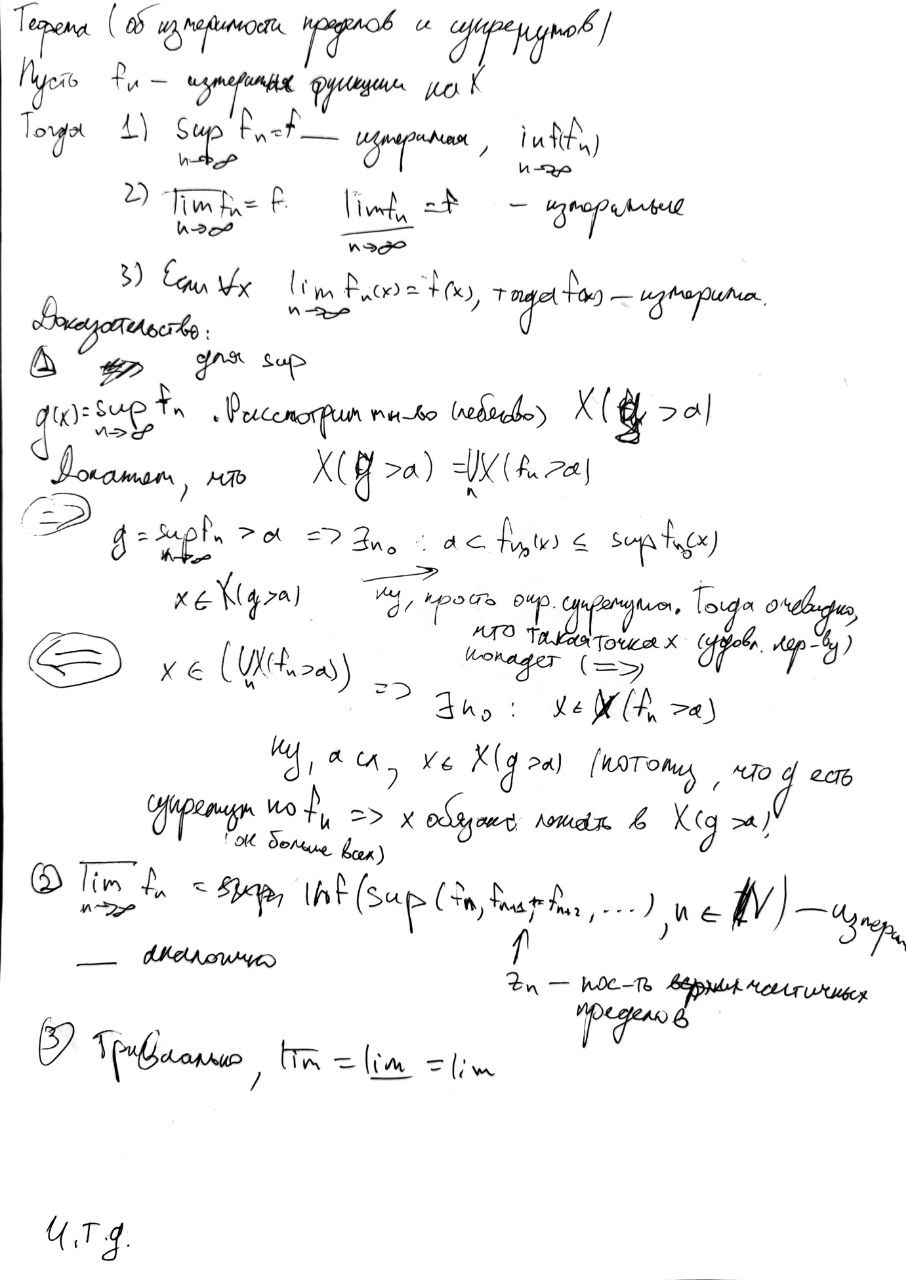 Теорема (об измеримости пределов и супремумов)
Пусть fₙ — измеримые функции на X
Тогда 1) sup fₙ = f — измеримая, inf(fₙ)
n→∞ n→∞
2) lim̅ fₙ = f. l̲i̲m̲ fₙ = f — измеримые
n→∞ n→∞
3) Если ∀x lim fₙ(x) = f(x), тогда f(x) — измерима.
n→∞
Доказательство:
① для sup
g(x) = sup fₙ. Рассмотрим мн-во (лебегово) X(g > a)
n→∞
Докажем, что X(g > a) = ⋃ X(fₙ > a)
n
⇒
g = sup fₙ > a => ∃n₀ : a < fₙ₀(x) ≤ sup fₙ₀(x)
n→∞
x ∈ X(g > a) → ну, просто опр. супремума. Тогда очевидно,
что такая точка x (удовл. нер-ву)
попадет (=>)
⇐
x ∈ (⋃ X(fₙ > a)) => ∃n₀ : x ∈ X(fₙ > a)
n
ну, а сл, x ∈ X(g > a) (потому, что g есть
супремум по fₙ => x обязан лежать в X(g > a)
(он больше всех)
② lim̅ fₙ = inf(sup(fₙ, fₙ₊₁, fₙ₊₂, ...), n ∈ ℕ) — измерим
n→∞
— аналогично
↑
zₙ — пос-ть частичных
пределов
③ Тривиально, lim̅ = l̲i̲m̲ = lim
Ч.Т.Д.